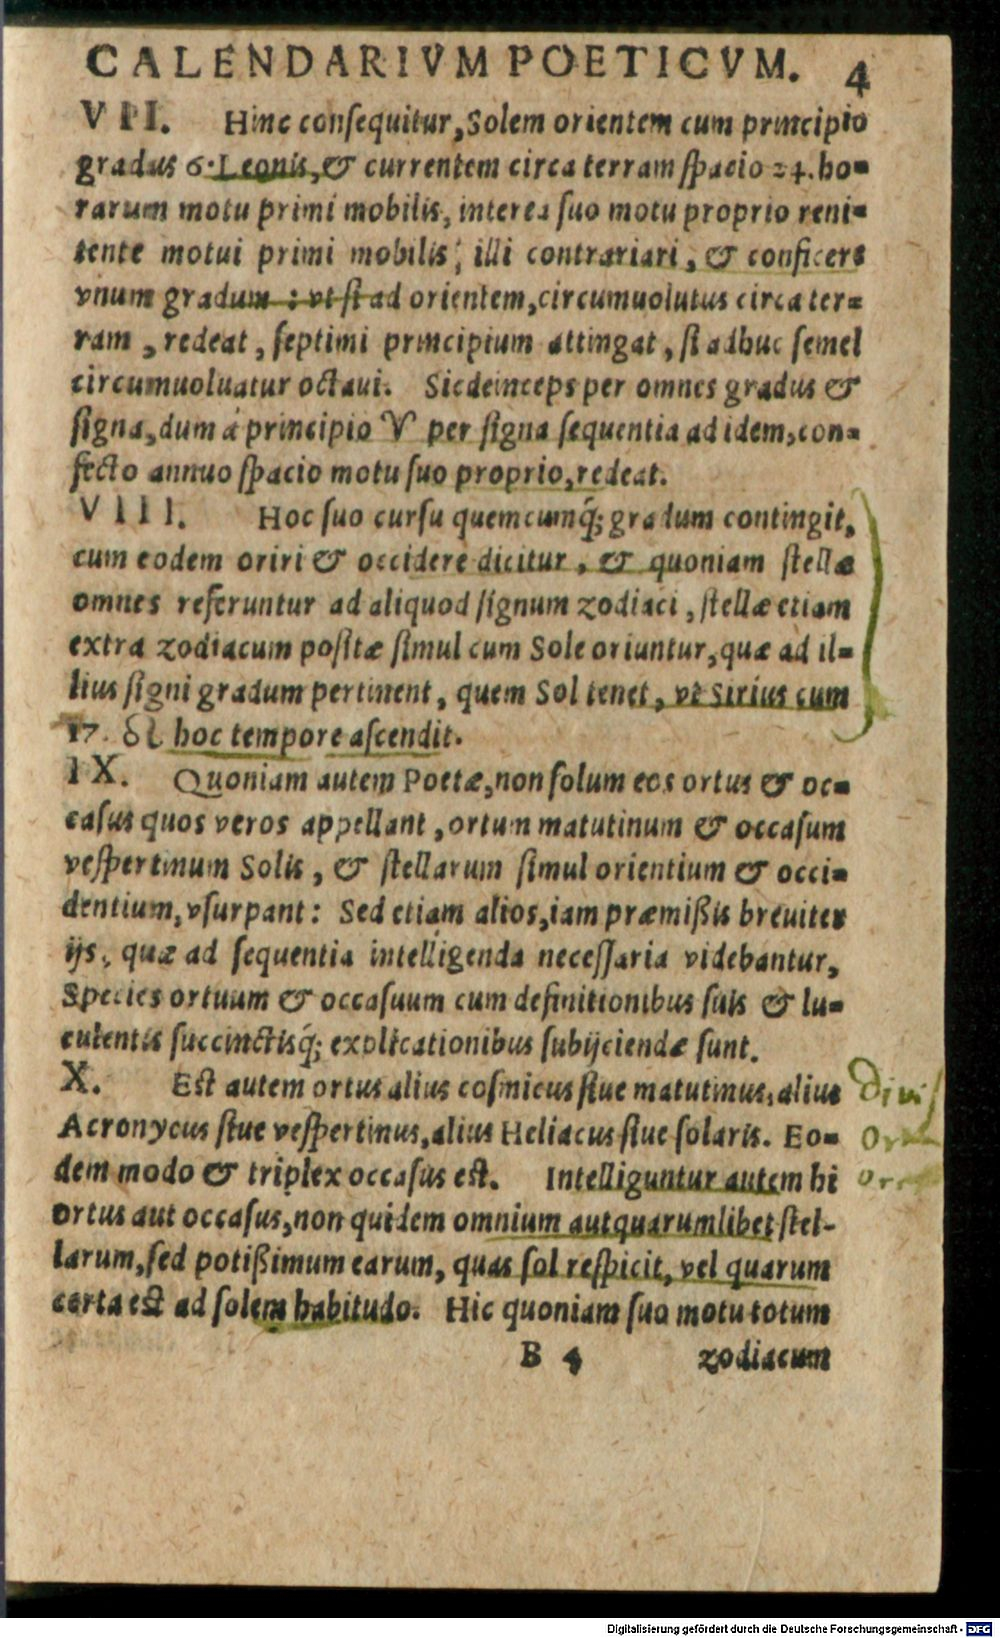 CALENDARIVM POETICVM. 4
VII. Hinc consequitur, Solem orientem cum principio
gradus 6. Leonis, & currentem circa terram spacio 24. ho-
rarum motu primi mobilis, interea suo motu proprio reni-
tente motui primi mobilis, illi contrariari, & conficere
vnum gradum : vt si ad orientem, circumuolutus circa ter-
ram, redeat, septimi principium attingat, si adhuc semel
circumuoluatur octaui. Sic deinceps per omnes gradus &
signa, dum à principio ♈ per signa sequentia ad idem, con-
fecto annuo spacio motu suo proprio, redeat.
VIII. Hoc suo cursu quemcumq; gradum contingit,
cum eodem oriri & occidere dicitur, & quoniam stellæ
omnes referuntur ad aliquod signum zodiaci, stellæ etiam
extra zodiacum positæ simul cum Sole oriuntur, quæ ad il-
lius signi gradum pertinent, quem Sol tenet, vt Sirius cum
17. ♌ hoc tempore ascendit.
IX. Quoniam autem Poetæ, non solum eos ortus & oc-
casus quos veros appellant, ortum matutinum & occasum
vespertinum Solis, & stellarum simul orientium & occi-
dentium, vsurpant: Sed etiam alios, iam præmißis breuiter
ijs, quæ ad sequentia intelligenda necessaria videbantur,
Species ortuum & occasuum cum definitionibus suis & lu-
culentis succinctisq; explicationibus subijciendæ sunt.
X. Est autem ortus alius cosmicus siue matutinus, alius
Acronycus siue vespertinus, alius Heliacus siue solaris. Eo-
dem modo & triplex occasus est. Intelliguntur autem hi
ortus aut occasus, non quidem omnium aut quarumlibet stel-
larum, sed potißimum earum, quas sol respicit, vel quarum
certa est ad solem habitudo. Hic quoniam suo motu totum
B 4 zodiacum
Digitalisierung gefördert durch die Deutsche Forschungsgemeinschaft - DFG